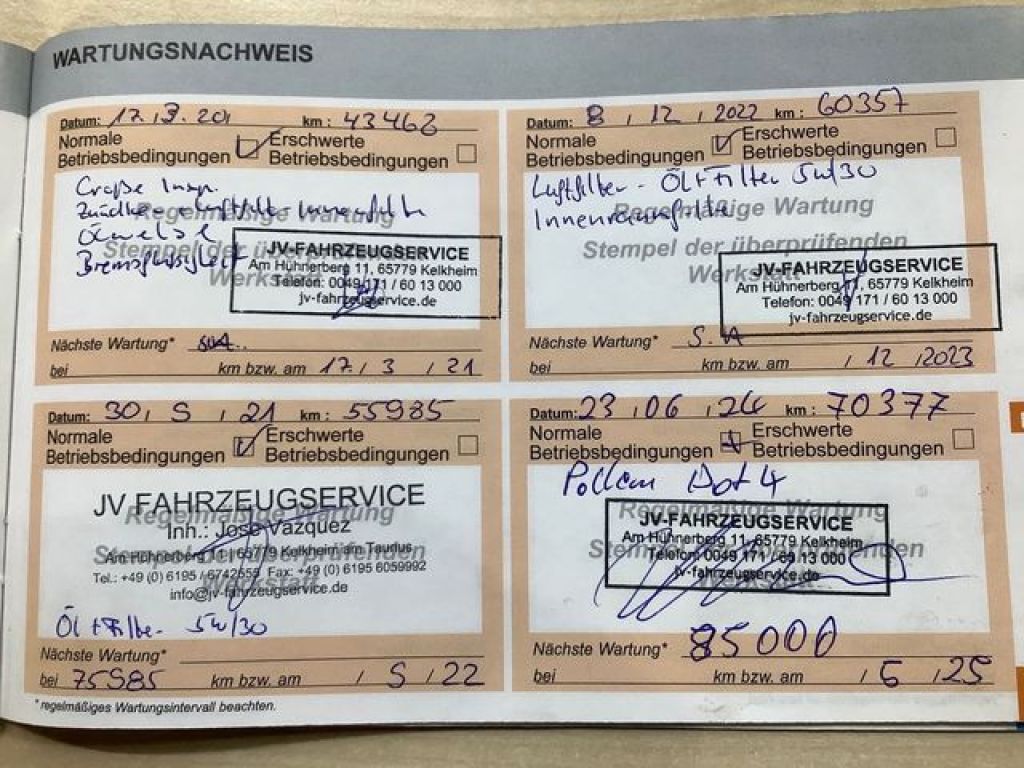 WARTUNGSNACHWEIS
Datum: 17.3.20 km: 43463
Normale Betriebsbedingungen Erschwerte Betriebsbedingungen
Große Insp.
Regelmäßige Wartung
Stempel der überprüfenden
Werkstatt
Bremsflüssigkeit
JV-FAHRZEUGSERVICE
Am Hühnerberg 11, 65779 Kelkheim
Telefon: 0049 171 / 60 13 000
jv-fahrzeugservice.de
Nächste Wartung*
bei km bzw. am 17. / 3 / 21
Datum: 8 / 12 / 2022 km: 60357
Normale Betriebsbedingungen Erschwerte Betriebsbedingungen
Luftfilter - Öl + Filter 5W/30
Innenraumfilter
Regelmäßige Wartung
Stempel der überprüfenden
Werkstatt
JV-FAHRZEUGSERVICE
Am Hühnerberg 11, 65779 Kelkheim
Telefon: 0049 171 / 60 13 000
jv-fahrzeugservice.de
Nächste Wartung* S.A
bei km bzw. am / 12 / 2023
Datum: 30 / 5 / 21 km: 55985
Normale Betriebsbedingungen Erschwerte Betriebsbedingungen
JV FAHRZEUGSERVICE
Regelmäßige Wartung
Inh.: José Vazquez
Am Hühnerberg 11 | 65779 Kelkheim am Taunus
Stempel der überprüfenden
Tel.: +49 (0) 6195 / 6742555 Fax: +49 (0) 6195 6059992
Werkstatt
info@jv-fahrzeugservice.de
Öl + Filter 5W/30
Nächste Wartung*
bei 75985 km bzw. am / 5 / 22
Datum: 23 / 06 / 24 km: 70377
Normale Betriebsbedingungen Erschwerte Betriebsbedingungen
Pollen Dot 4
Regelmäßige Wartung
Stempel der überprüfenden
Werkstatt
JV-FAHRZEUGSERVICE
Am Hühnerberg 11, 65779 Kelkheim
Telefon: 0049 171 / 60 13 000
jv-fahrzeugservice.de
Nächste Wartung* 85000
bei km bzw. am / 6 / 25
* regelmäßiges Wartungsintervall beachten.